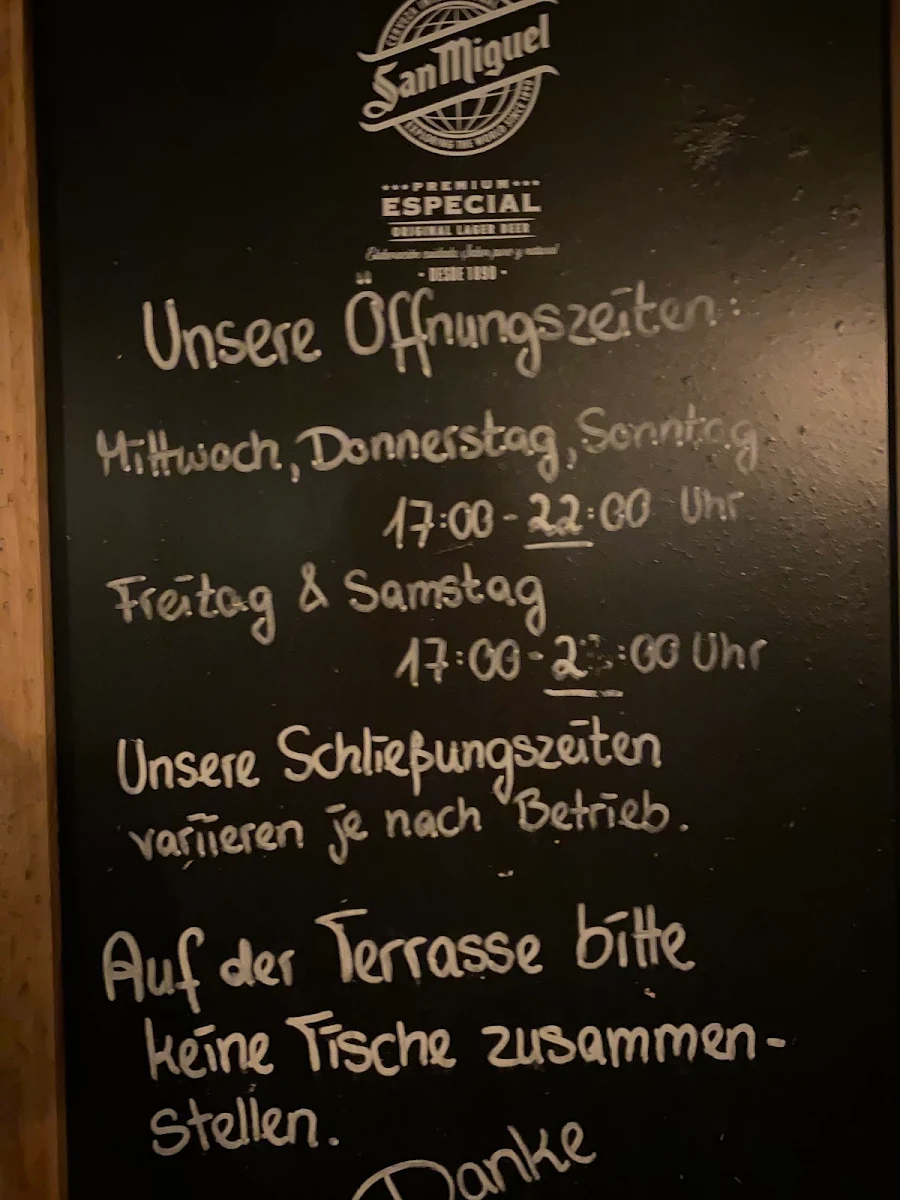 San Miguel
EXPLORING THE WORLD SINCE 1890
PREMIUM
ESPECIAL
ORIGINAL LAGER BEER
- DESDE 1890 -
Unsere Öffnungszeiten:
Mittwoch, Donnerstag, Sonntag
17:00 - 22:00 Uhr
Freitag & Samstag
17:00 - :00 Uhr
Unsere Schließungszeiten
variieren je nach Betrieb.
Auf der Terrasse bitte
keine Tische zusammen-
stellen.
Danke